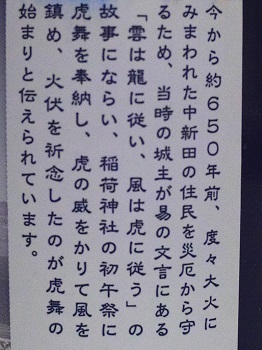 今から約６５０年前、度々大火に
みまわれた中新田の住民を災厄から守
るため、当時の城主が易の文言にある
「雲は龍に従い、風は虎に従う」の
故事にならい、稲荷神社の初午祭に
虎舞を奉納し、虎の威をかりて風を
鎮め、火伏を祈念したのが虎舞の
始まりと伝えられています。